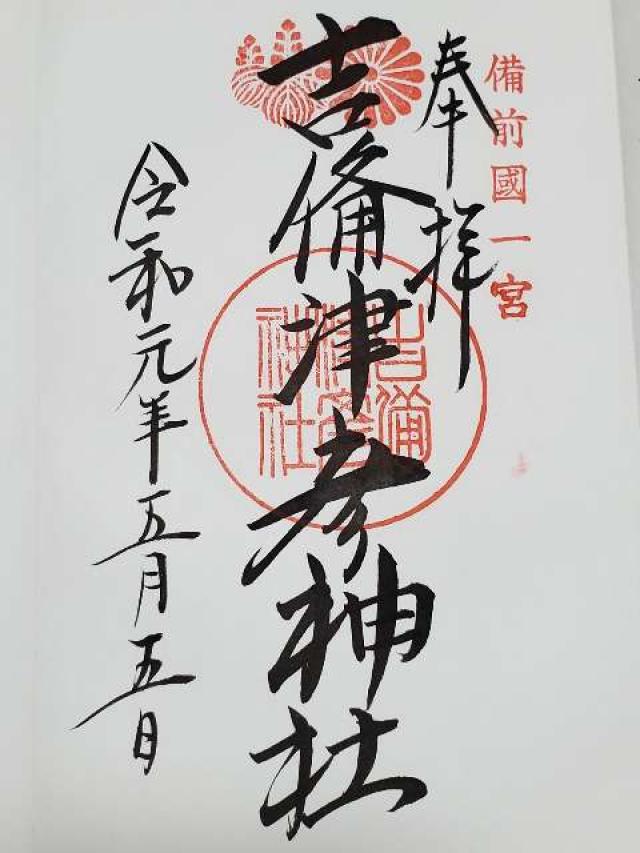 備前國一宮
奉拝
吉備津彦神社
吉備
津彦
神社
令和元年五月五日